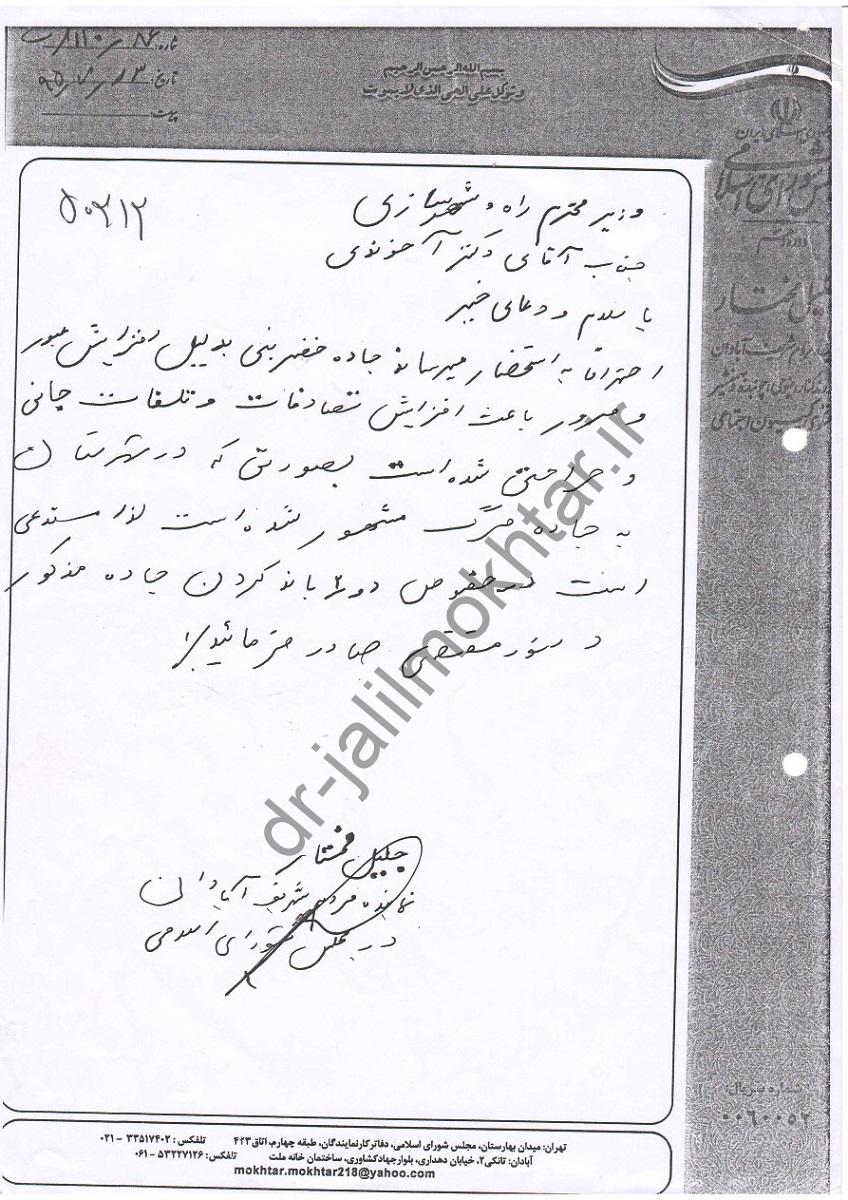 بسم الله الرحمن الرحیم
وتوکل علی الحی الذی لا یموت
شماره:
تاریخ: ۹۵/۷/۱۳
پیوست:
جمهوری اسلامی ایران
مجلس شورای اسلامی
جلیل مختار
وزیر محترم راه و شهرسازی
جناب آقای دکتر آخوندی
با سلام و دعای خیر
احتراماً به استحضار میرساند جاده خضر نبی بدلیل افزایش عبور
و مرور باعث افزایش تصادفات و تلفات جانی
و جراحتی شده است بصورتی که در شهرستان
به جاده مرگ مشهور شده است لذا مستدعی
است در خصوص دو بانده کردن جاده مذکور
دستور مقتضی صادر فرمائید
جلیل مختار
نماینده مردم شریف آبادان
در مجلس شورای اسلامی
dr-jalilmokhtar.ir
شماره سریال:
۰۰۶۰۰۵۲
تهران: میدان بهارستان، مجلس شورای اسلامی، دفاتر کار نمایندگان، طبقه چهارم، اتاق ۴۲۳ تلفکس: ۳۳۵۱۷۴۰۲ - ۰۲۱
آبادان: تانکی ۲، خیابان دهداری، بلوار جهاد کشاوری، ساختمان خانه ملت تلفکس: ۵۳۲۲۷۱۲۶ - ۰۶۱
mokhtar.mokhtar218@yahoo.com